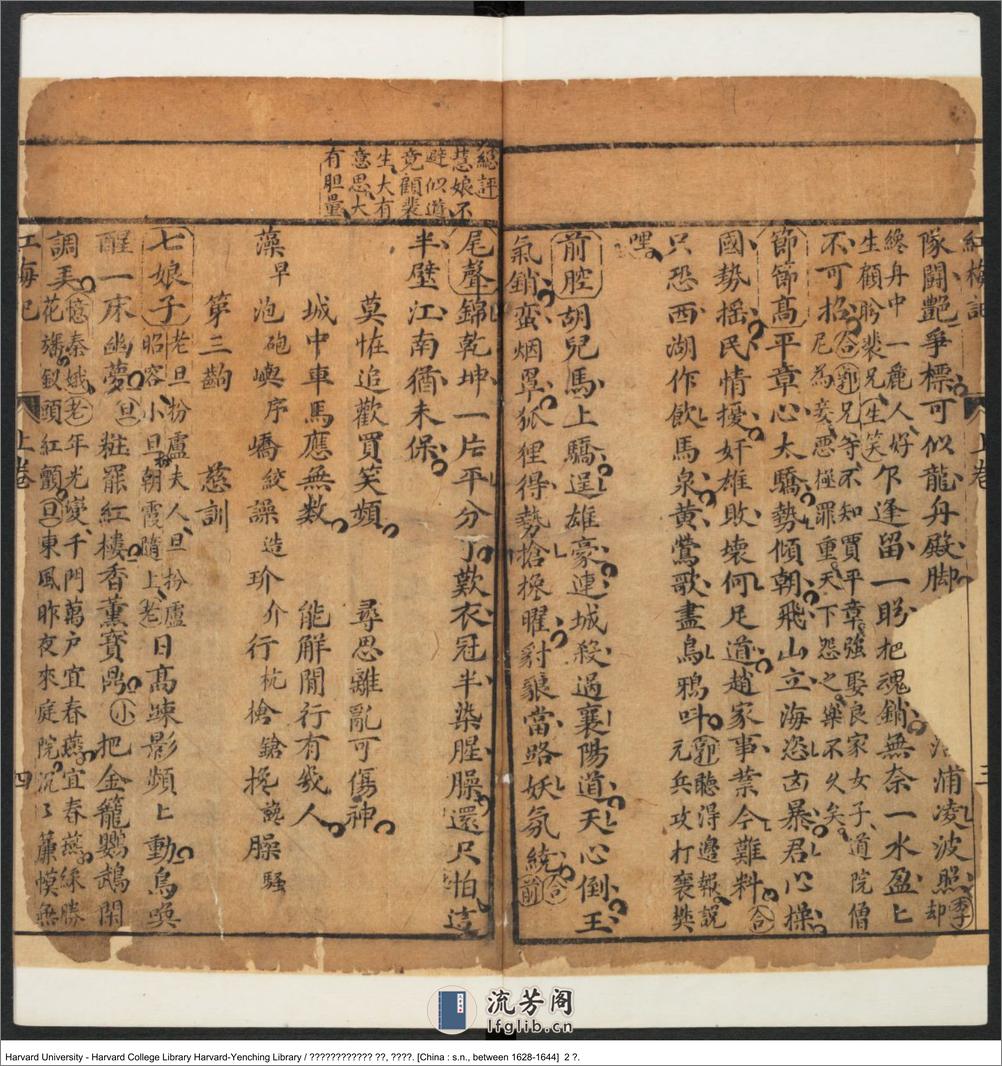 紅梅記 上卷 三
隊闘艷爭標可似龍舟殿脚 浦凌波照却季
纔舟中一麗人好
生顧盻裴兄生笑乍逢留一盻把魂銷無奈一水盈匕
不可招合尼為妾悪極罪重天下怨之樂不久矣
郭兄等不知賈平章強娶良家女子道院僧
節節高平章心太驕勢傾朝飛山立海恣凶暴君心操
國勢揺民情擾奸雄敗壊何足道趙家事業今難料合
只恐西湖作飲馬泉黄鶯歌盡烏鴉呌郭聽得邊報説
元兵攻打襄樊
嘿
前腔胡兒馬上驕逞雄豪連城殺過襄陽道天心倒王
氣銷蛮烟罩狐狸得勢搶攙曜豺狼當路妖氛繞合前
總評
慧娘不
避似道
竟顧裴
生大有
意思大
有胆量
尾聲錦乾坤一片平分了歎衣冠半染腥臊還只怕這
半壁江南猶未保
莫恠追歡買笑頻 尋思離亂可傷神
城中車馬應無数 能解閒行有幾人
藻早 泡砲 嶼序 嶠絞 譟造 玠介 行杭 槍鎗 攙 臊騷
第三齣 慈訓
七娘子老旦扮盧夫人旦扮盧
昭容小旦扮朝霞隨上老日髙踈影頻匕動鳥喚
醒一床幽夢旦粧罷紅樓香薫寳鼎小把金籠鸚鵡閑
調美憶秦娥老年光變千門萬户宜春燕宜春燕綵勝
花旛釵頭紅顫旦東風昨夜來庭院沉匕簾幙無
紅梅記 上卷 四
流芳阁
lfglib.cn
Harvard University - Harvard College Library Harvard-Yenching Library / ???????????? ??, ????. [China : s.n., between 1628-1644] 2 ?.